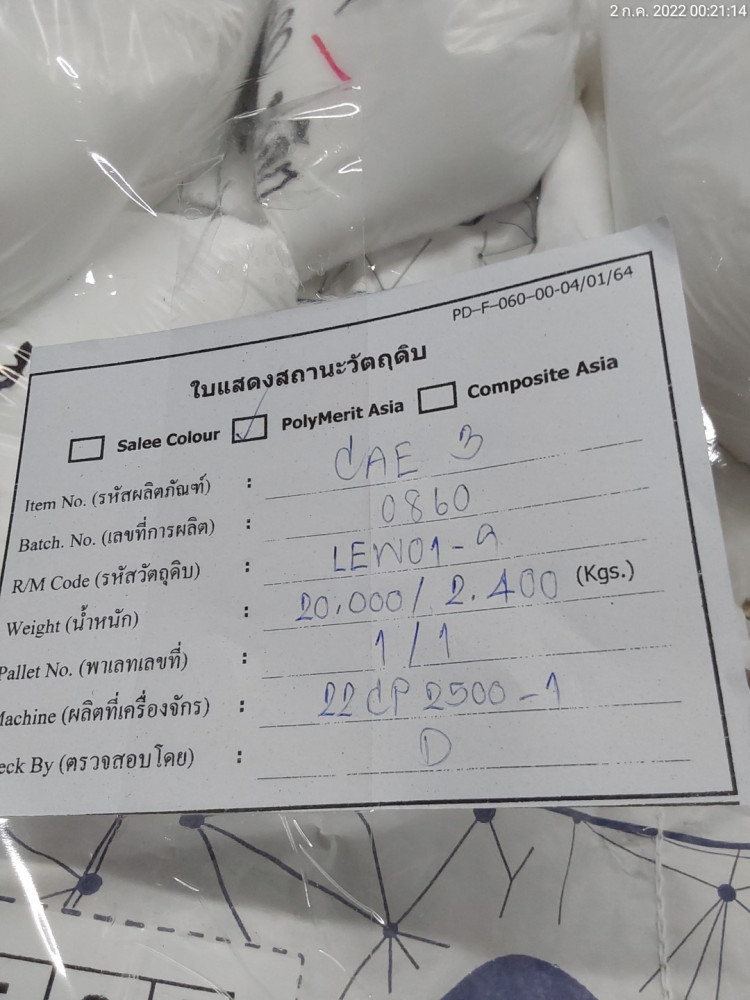 2 ก.ค. 2022 00:21:14
PD-F-060-00-04/01/64
ใบแสดงสถานะวัตถุดิบ
Salee Colour PolyMerit Asia Composite Asia
Item No. (รหัสผลิตภัณฑ์) : CAE 3
Batch. No. (เลขที่การผลิต) : 0860
R/M Code (รหัสวัตถุดิบ) : LEW01-9
Weight (น้ำหนัก) : 20.000/ 2.400 (Kgs.)
Pallet No. (พาเลทเลขที่) : 1/1
Machine (ผลิตที่เครื่องจักร) : 22 CP 2500-1
eck By (ตรวจสอบโดย) : D